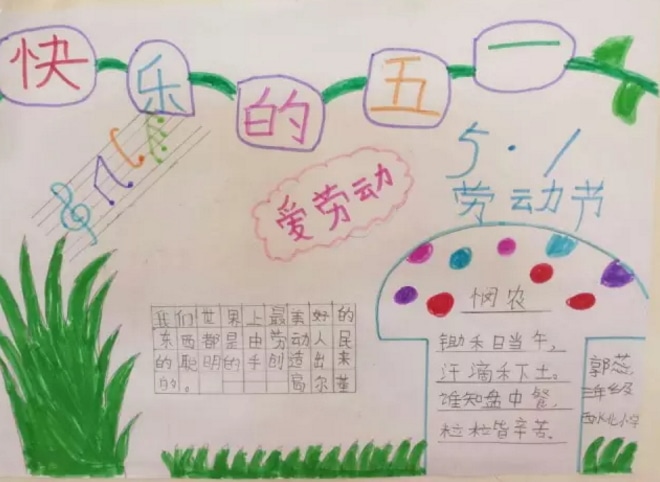 快乐的五一
5·1
劳动节
爱劳动
我们世界上最美好的
东西都是由劳动人民
的聪明的手创造出来
的。高尔基
悯农
锄禾日当午,
汗滴禾下土。
谁知盘中餐,
粒粒皆辛苦。
郭蕊
三年级
小学